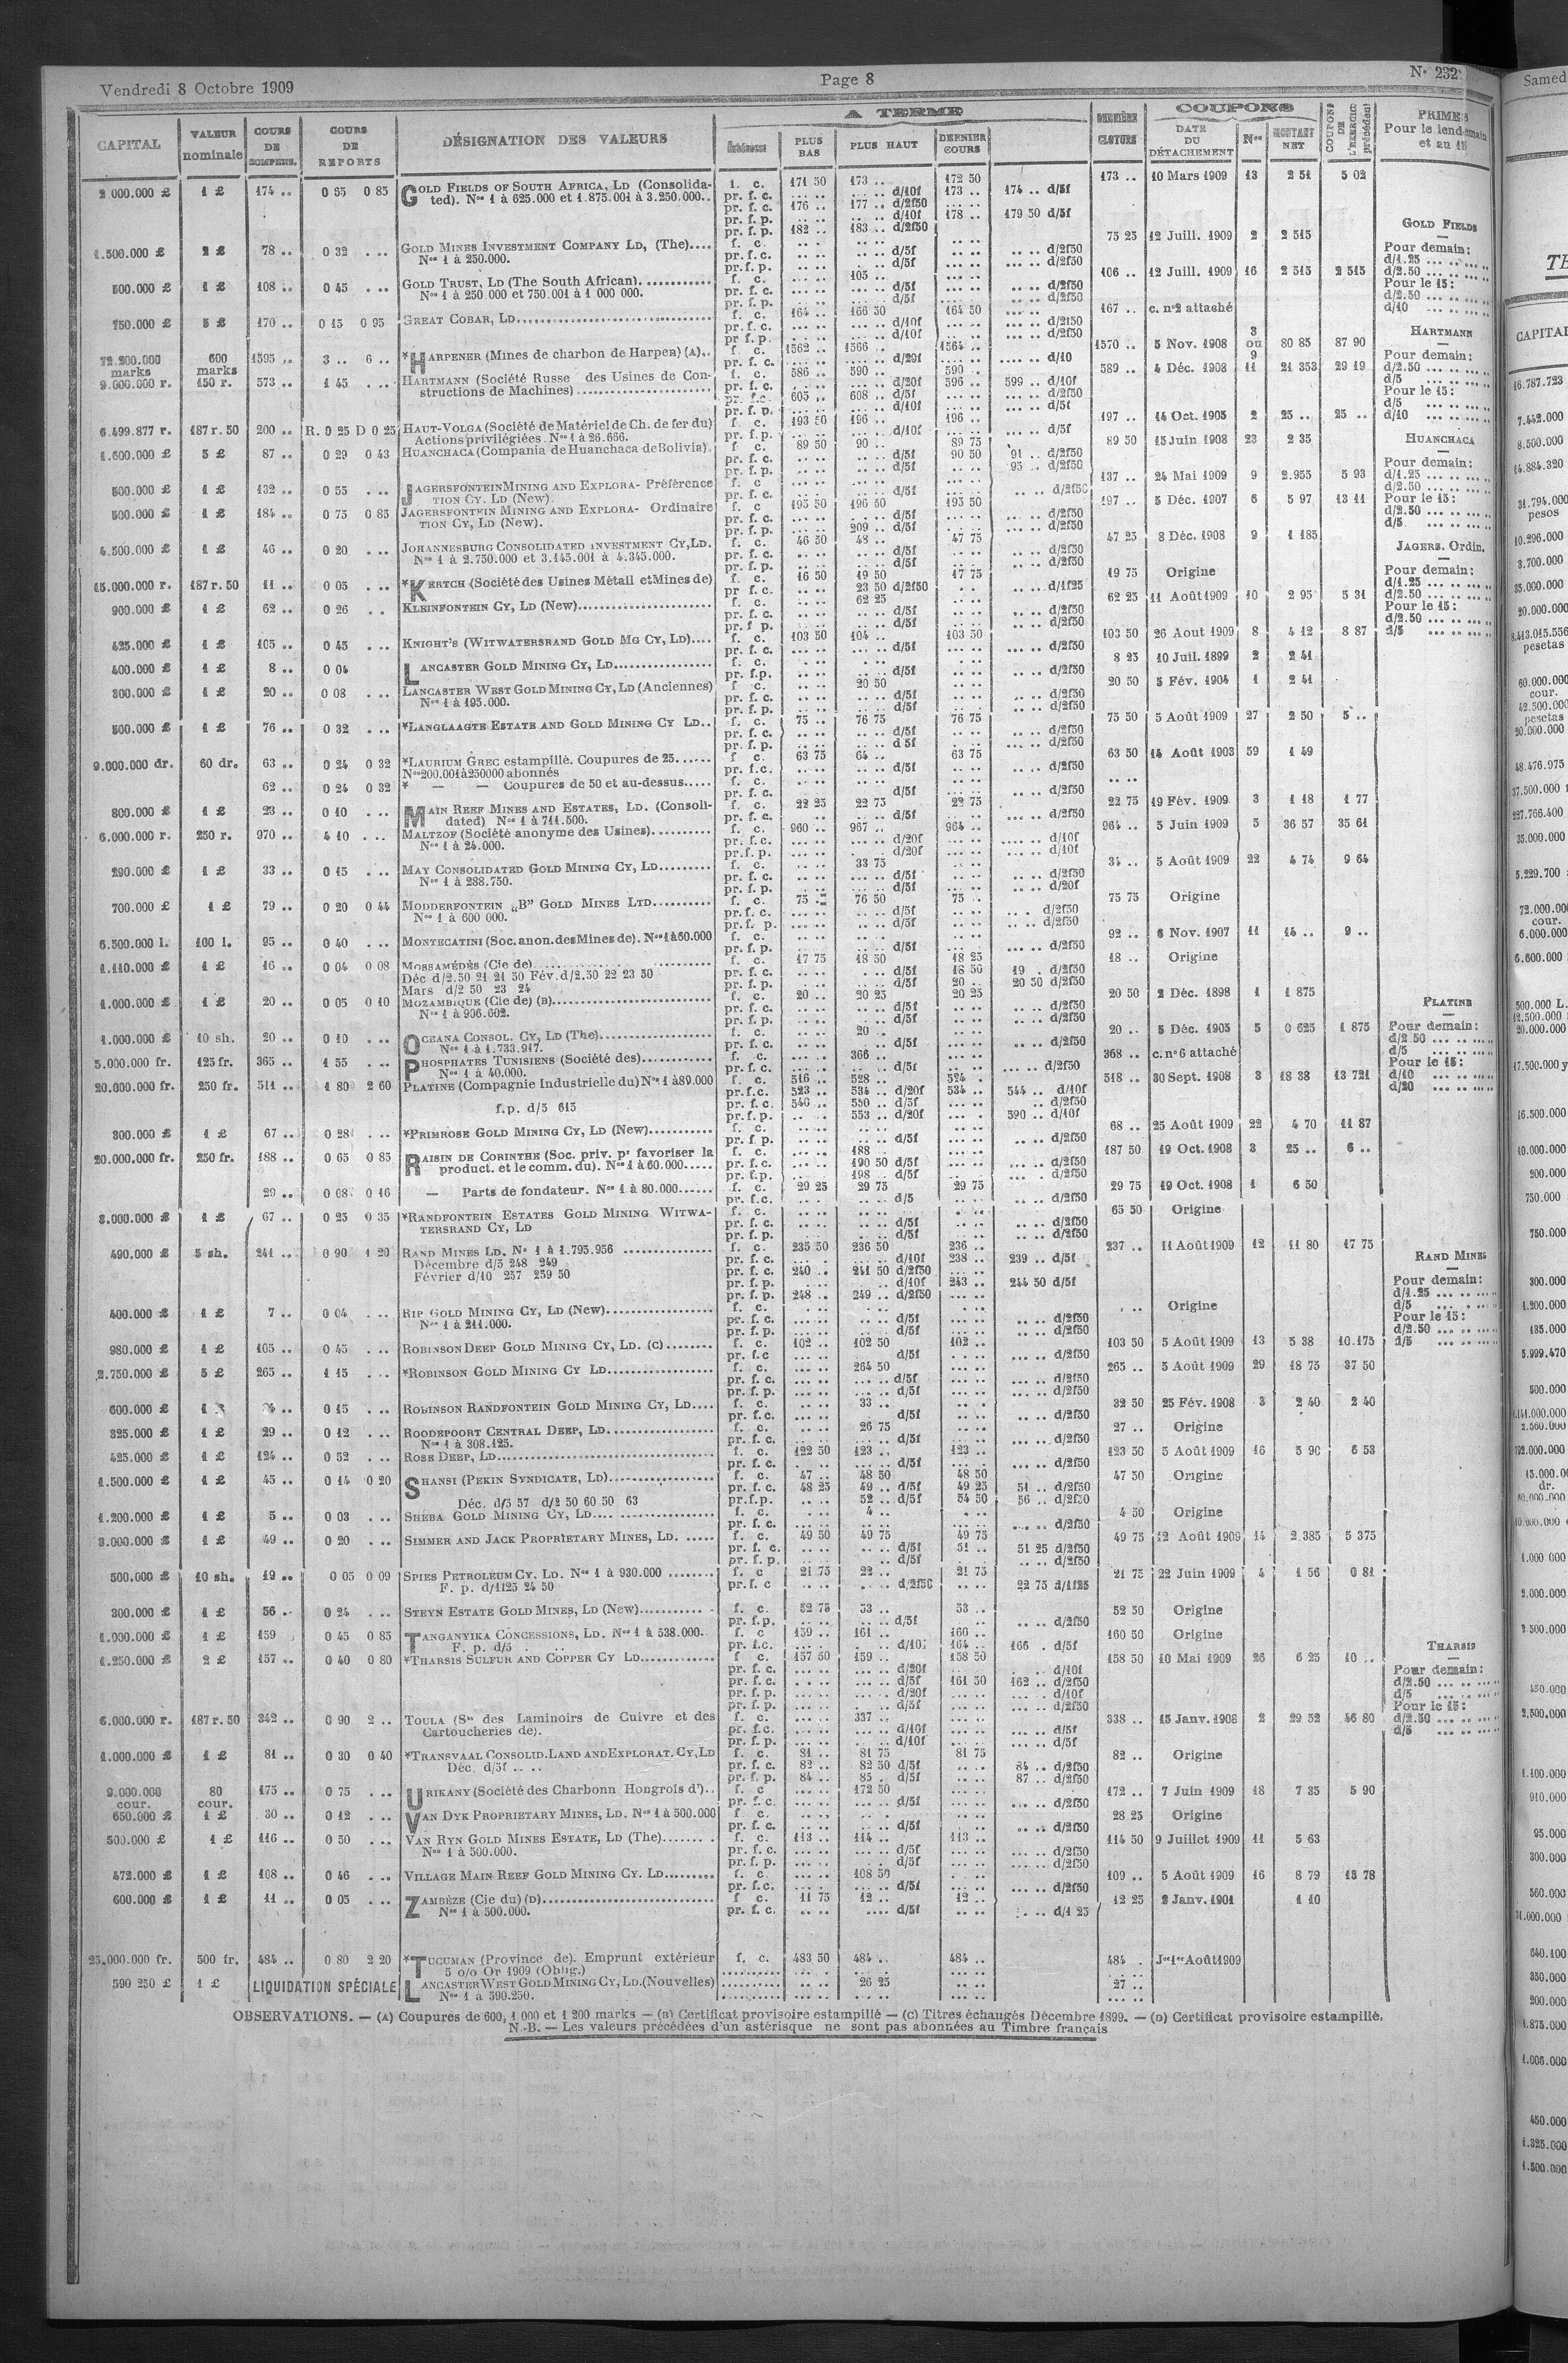 Vendredi 8 Octobre 1909 Page 8 N° 232
CAPITAL VALEUR nominale COURS DE COMPENS. COURS DE REPORTS DÉSIGNATION DES VALEURS A TERME Échéances PLUS BAS PLUS HAUT DERNIER COURS DERNIÈRE CLOTURE COUPONS DATE DU DÉTACHEMENT Nos MONTANT NET COUPONS DE L'EXERCICE précédent PRIMES Pour le lendemain et au 15
2.000.000 £ 1 £ 174 .. 0 55 0 85 GOLD FIELDS OF SOUTH AFRICA, LD (Consolida- f. c. 171 50 173 .. 172 50 173 .. 10 Mars 1909 13 2 51 5 02
ted). Nos 1 à 625.000 et 1.875.001 à 3.250.000.. pr. f. c. .. .. .. .. d/10f 173 .. 174 .. d/5f
pr. f. c. 176 .. 177 .. d/2f50
pr. f. p. .. .. .. .. d/10f 178 .. 179 50 d/5f
pr. f. p. 182 .. 183 .. d/2f50
1.500.000 £ 2 £ 78 .. 0 32 .. .. GOLD MINES INVESTMENT COMPANY LD, (The).... f. c. 75 25 12 Juill. 1909 2 2 515
Nos 1 à 250.000. pr. f. c. d/5f d/2f50
pr. f. p. d/5f d/2f50
500.000 £ 1 £ 108 .. 0 45 ... GOLD TRUST, LD (The South African)............ f. c. 105 .. 106 .. 12 Juill. 1909 16 2 515 2 515
Nos 1 à 250.000 et 750.001 à 1 000 000. pr. f. c. d/5f d/2f50
pr. f. p. d/5f d/2f50
750.000 £ 5 £ 170 .. 0 15 0 95 GREAT COBAR, LD........ f. c. 164 .. 166 50 164 50 167 .. c. n°2 attaché
pr. f. c. d/10f d/2f50
pr. f. p. d/10f d/2f50
72.200.000 marks 600 marks 1595 .. 3 .. 6 .. *HARPENER (Mines de charbon de Harpen) (A).. f. c. 1562 .. 1566 .. 1564 .. 1570 .. 5 Nov. 1908 3 ou 9 80 85 87 90
pr. f. c. d/20f d/10
9.000.000 r. 150 r. 573 .. 1 45 ... HARTMANN (Société Russe des Usines de Con- f. c. 586 .. 590 .. 590 .. 589 .. 4 Déc. 1908 11 21 353 29 19
structions de Machines) pr. f. c. d/20f 596 .. 599 .. d/10f
pr. f.c. 605 .. 608 .. d/5f d/2f50
pr. f. p. d/10f d/5f
6.499.877 r. 187 r. 50 200 .. R. 0 25 D 0 25 HAUT-VOLGA (Société de Matériel de Ch. de fer du) f. c. 193 50 196 .. 196 .. 197 .. 14 Oct. 1905 2 25 .. 25 ..
Actions privilégiées. Nos 1 à 26.666. pr. f. p. d/10f d/5f
1.600.000 £ 5 £ 87 .. 0 29 0 43 HUANCHACA (Compania de Huanchaca de Bolivia). f. c. 89 50 90 .. 89 75 89 50 15 Juin 1908 23 2 35
pr. f. c. d/5f 90 50 91 .. d/2f50
pr. f. p. d/5f 95 .. d/2f50
500.000 £ 1 £ 132 .. 0 55 ... JAGERSFONTEIN MINING AND EXPLORA- Préférence f. c. 137 .. 24 Mai 1909 9 2.955 5 93
TION CY. LD (New). pr. f. c. d/5f d/2f50
500.000 £ 1 £ 184 .. 0 75 0 85 JAGERSFONTEIN MINING AND EXPLORA- Ordinaire f. c. 195 50 196 50 195 50 197 .. 5 Déc. 1907 6 5 97 13 11
TION CY, LD (New). pr. f. c. d/5f d/2f50
pr. f. p. 209 .. d/5f d/2f50
4.500.000 £ 1 £ 46 .. 0 20 ... JOHANNESBURG CONSOLIDATED INVESTMENT CY, LD. f. c. 46 50 48 .. 47 75 47 25 3 Déc. 1908 9 1 185
Nos 1 à 2.750.000 et 3.145.001 à 4.345.000. pr. f. c. d/5f d/2f50
pr. f. p. d/5f d/2f50
15.000.000 r. 187 r. 50 11 .. 0 05 ... *KERTCH (Société des Usines Métall et Mines de) f. c. 16 50 19 50 17 75 19 75 Origine
pr f. c. 23 50 d/2f50 d/1f25
900.000 £ 1 £ 62 .. 0 26 .. KLEINFONTEIN CY, LD (New)........ f. c. 62 25 62 25 11 Août 1909 10 2 95 5 31
pr. f. c. d/5f d/2f50
pr. f p. d/5f d/2f50
425.000 £ 1 £ 105 .. 0 45 ... KNIGHT'S (WITWATERSRAND GOLD MG CY, LD).... f. c. 103 50 104 .. 103 50 103 50 26 Aout 1909 8 4 12 8 87
pr. f. c. d/5f d/2f50
400.000 £ 1 £ 8 .. 0 04 LANCASTER GOLD MINING CY, LD........ f. c. 8 25 10 Juil. 1899 2 2 41
pr. f.p. d/5f d/2f50
300.000 £ 1 £ 20 .. 0 08 ... LANCASTER WEST GOLD MINING CY, LD (Anciennes) f c. 20 50 20 50 5 Fév. 1904 1 2 41
Nos 1 à 195.000. pr. f. c. d/5f d/2f50
pr. f. p. d/5f d/2f50
500.000 £ 1 £ 76 .. 0 32 ... *LANGLAAGTE ESTATE AND GOLD MINING CY LD.. f. c. 75 .. 76 75 76 75 75 50 5 Août 1909 27 2 50 5 ..
pr. f. c. d/5f d/2f50
pr. f. p. d 5f d/2f50
9.000.000 dr. 60 dr. 63 .. 0 24 0 32 *LAURIUM GREC estampillé. Coupures de 25...... f c. 63 75 64 .. 63 75 63 50 14 Août 1903 59 1 49
Nos 200.001 à 250000 abonnés pr. f.c. d/5f d/2f50
62 .. 0 24 0 32 * — — Coupures de 50 et au-dessus..... f. c.
pr. f. c. d/5f d/2f50
800.000 £ 1 £ 23 .. 0 10 ... MAIN REEF MINES AND ESTATES, LD. (Consoli- f. c. 22 25 22 75 22 75 22 75 19 Fév. 1909 3 1 18 1 77
dated) Nos 1 à 711.500. pr. f. c. d/5f d/2f50
6.000.000 r. 250 r. 970 .. 4 10 ... MALTZOF (Société anonyme des Usines).......... f. c. 960 .. 967 .. 964 .. 964 .. 5 Juin 1909 5 36 57 35 61
Nos 1 à 24.000. pr. f.c. d/20f d/10f
pr. f. p. d/20f d/10f
290.000 £ 1 £ 33 .. 0 15 ... MAY CONSOLIDATED GOLD MINING CY, LD......... f. c. 33 75 34 .. 5 Août 1909 22 4 74 9 64
Nos 1 à 288.750. pr. f. c. d/5f d/2f50
pr. f. p. d/5f d/20f
700.000 £ 1 £ 79 .. 0 20 0 44 MODDERFONTEIN „B" GOLD MINES LTD.......... f. c. 75 .. 76 50 75 .. 75 75 Origine
Nos 1 à 600 000. pr. f. c. d/5f d/2f50
pr. f. p. d/5f d/2f50
6.500.000 l. 100 l. 95 .. 0 40 ... MONTECATINI (Soc. anon. des Mines de). Nos 1 à 60.000 f. c. 92 .. 6 Nov. 1907 11 14 .. 9 ..
pr. f. p. d/5f d/2f50
1.110.000 £ 1 £ 16 .. 0 04 0 08 MOSSAMÉDÈS (Cie de)........ f. c. 17 75 18 50 18 25 18 .. Origine
Déc d/2.50 21 21 50 Fév. d/2.50 22 23 50 pr. f. c. d/5f 18 50 19 . d/2f50
Mars d/2 50 23 24 pr. f. p. d/5f 20 .. 20 50 d/2f50
1.000.000 £ 1 £ 20 .. 0 05 0 10 MOZAMBIQUE (Cie de) (B)........ f. c. 20 .. 20 25 20 25 20 50 2 Déc. 1898 1 1 875
Nos 1 à 906.602. pr. f. c. d/5f d/2f50
pr. f. p. d/5f d/2f50
1.000.000 £ 10 sh. 20 .. 0 10 ... OCEANA CONSOL. CY, LD (The)........ f. c. 20 .. 20 .. 5 Déc. 1905 5 0 625 1 875
Nos 1 à 1.733.917. pr. f. c. d/5f d/2f50
5.000.000 fr. 125 fr. 365 .. 1 55 ... PHOSPHATES TUNISIENS (Société des)........... f. c. 366 .. 368 .. c. n°6 attaché
Nos 1 à 40.000. pr. f. c. d/5f d/2f50
20.000.000 fr. 250 fr. 511 .. 1 80 2 60 PLATINE (Compagnie Industrielle du) Nos 1 à 89.000 f. c. 516 .. 528 .. 524 . 518 .. 30 Sept. 1908 3 18 38 13 721
pr. f.c. 523 .. 534 .. d/20f 534 .. 544 .. d/10f
f.p. d/5 615 pr. f. c. 540 .. 550 .. d/5f d/2f50
pr. f. p. 553 .. d/20f 590 .. d/10f
300.000 £ 1 £ 67 .. 0 28 ... *PRIMROSE GOLD MINING CY, LD (New)........... f. c. 68 .. 25 Août 1909 22 4 70 11 87
pr. f p. d/5f d/2f50
20.000.000 fr. 250 fr. 188 .. 0 65 0 85 RAISIN DE CORINTHE (Soc. priv. pr favoriser la f. c. 188 .. 187 50 19 Oct. 1908 3 25 .. 6 ..
product. et le comm. du). Nos 1 à 60.000..... pr. f. c. 190 50 d/5f d/2f50
pr. f. p. 198 .. d/5f d/2f50
29 .. 0 08 0 16 — Parts de fondateur. Nos 1 à 80.000...... f. c. 29 25 29 75 29 75 29 75 19 Oct. 1908 1 6 50
pr. f.c. d/5 d/2f50
3.000.000 £ 1 £ 67 .. 0 25 0 35 *RANDFONTEIN ESTATES GOLD MINING WITWA- f. c. 65 50 Origine
TERSRAND CY, LD pr. f. c. d/5f d/2f50
pr. f. p. d/5f d/2f50
490.000 £ 5 sh. 241 .. 0 90 1 20 RAND MINES LD. N° 1 à 1.795.956 ............... f. c. 235 50 236 50 236 .. 237 .. 11 Août 1909 12 11 80 17 75
Décembre d/5 248 249 pr. f. c. d/10f 238 .. 239 .. d/5f
Février d/10 257 259 50 pr. f. c. 240 .. 241 50 d/2f50
pr. f. p. d/10f 243 .. 244 50 d/5f
pr. f. p. 248 .. 249 .. d/2f50
400.000 £ 1 £ 7 .. 0 04 ... RIP GOLD MINING CY, LD (New)........ f. c. Origine
Nos 1 à 211.000. pr. f. c. d/5f d/2f50
pr. f. p. d/5f d/2f50
980.000 £ 1 £ 105 .. 0 45 ... ROBINSON DEEP GOLD MINING CY, LD. (C)........ f. c. 102 .. 102 50 102 .. 103 50 5 Août 1909 13 5 38 10.175
pr. f. c d/5f d/2f50
2.750.000 £ 5 £ 265 .. 1 15 ... *ROBINSON GOLD MINING CY LD........ f. c. 264 50 265 .. 5 Août 1909 29 18 75 37 50
pr. f. c. d/5f d/2f50
pr. f. p. d/5f d/2f50
600.000 £ 0 15 ... ROBINSON RANDFONTEIN GOLD MINING CY, LD.... f. c. 33 .. 32 50 25 Fév. 1908 3 2 40 2 40
pr. f. c. d/5f d/2f50
325.000 £ 1 £ 29 .. 0 12 ... ROODEPOORT CENTRAL DEEP, LD........ f. c. 26 75 27 .. Origine
Nos 1 à 308.125. pr. f. c. d/5f d/2f50
425.000 £ 1 £ 124 .. 0 52 ... ROSE DEEP, LD........ f. c. 122 50 123 .. 123 .. 123 50 5 Août 1909 16 5 90 6 53
pr. f. c. d/5f d/2f50
1.500.000 £ 1 £ 45 .. 0 14 0 20 SHANSI (PEKIN SYNDICATE, LD)........ f. c. 47 .. 48 50 48 50 47 50 Origine
pr. f. c. 48 25 49 .. d/5f 49 25 51 .. d/2f50
Déc. d/5 57 d/2 50 60 50 63 pr. f. p. 52 .. d/5f 54 50 56 .. d/2f50
1.200.000 £ 1 £ 5 .. 0 03 ... SHEBA GOLD MINING CY, LD........ f. c. 4 .. 4 50 Origine
pr. f. c. d/2f50
3.000.000 £ 1 £ 49 .. 0 20 ... SIMMER AND JACK PROPRIETARY MINES, LD. ..... f. c. 49 50 49 75 49 75 49 75 12 Août 1909 14 2.385 5 375
pr. f. c. d/5f 51 .. 51 25 d/2f50
pr. f. p. d/5f d/2f50
500.000 £ 10 sh. 19 .. 0 05 0 09 SPIES PETROLEUM CY. LD. Nos 1 à 930.000 ........ f. c 21 75 22 .. 21 75 21 75 22 Juin 1909 4 1 56 0 81
F. p. d/1f25 24 50 pr. f. c d/2f50 22 75 d/1f25
300.000 £ 1 £ 56 .. 0 24 ... STEYN ESTATE GOLD MINES, LD (New)........... f. c. 52 75 53 .. 53 .. 52 50 Origine
pr. f. p. d/5f d/2f50
1.000.000 £ 1 £ 159 0 45 0 85 TANGANYIKA CONCESSIONS, LD. Nos 1 à 538.000.. f. c 159 .. 161 .. 160 .. 160 50 Origine
F. p. d/5 . .. pr. f.c. d/10f 164 .. 166 . d/5f
1.250.000 £ 2 £ 157 .. 0 40 0 80 *THARSIS SULFUR AND COPPER CY LD............. f. c. 157 50 159 .. 158 50 158 50 10 Mai 1909 26 6 25 10 ..
pr. f. c. d/20f d/10f
pr. f. c. d/5f 161 50 162 .. d/2f50
pr. f. p. d/20f d/10f
pr. f. p. d/5f d/2f50
6.000.000 r. 187 r. 50 342 .. 0 90 2 .. TOULA (Sté des Laminoirs de Cuivre et des f. c. 337 .. 338 .. 15 Janv. 1908 2 29 52 46 80
Cartoucheries de). pr. f.c. d/10f d/5f
pr. f. p. d/10f d/5f
1.000.000 £ 1 £ 81 .. 0 30 0 40 *TRANSVAAL CONSOLID. LAND AND EXPLORAT. CY, LD f. c. 81 .. 81 75 81 75 82 .. Origine
Déc. d/5f .. .. pr. f. c. 82 .. 82 50 d/5f 84 .. d/2f50
pr. f. p. 84 .. 85 . d/5f 87 .. d/2f50
9.000.000 cour. 80 cour. 175 .. 0 75 ... URIKANY (Société des Charbonn Hongrois d').. f. c 172 50 172 .. 7 Juin 1909 18 7 35 5 90
pr. f. c. d/5f d/2f50
650.000 £ 1 £ 30 .. 0 12 ... VAN DYK PROPRIETARY MINES, LD. Nos 1 à 500.000 f c. 28 25 Origine
pr. f. c. d/5f d/2f50
500.000 £ 1 £ 116 .. 0 50 ... VAN RYN GOLD MINES ESTATE, LD (The)........ f. c. 113 .. 114 .. 113 .. 114 50 9 Juillet 1909 11 5 63
Nos 1 à 500.000. pr. f. c. d/5f d/2f50
pr. f. p. d/5f d/2f50
472.000 £ 1 £ 108 .. 0 46 ... VILLAGE MAIN REEF GOLD MINING CY. LD......... f. c 108 50 109 .. 5 Août 1909 16 8 79 13 78
pr. f.c. d/5f d/2f50
600.000 £ 1 £ 11 .. 0 05 ... ZAMBÈZE (Cie du) (D)........ f c. 11 75 12 .. 12 .. 12 25 2 Janv. 1901 1 10
Nos 1 à 500.000. pr. f. c. d/5f d/1 25
25.000.000 fr. 500 fr. 484 .. 0 80 2 20 *TUCUMAN (Province de). Emprunt extérieur f. c. 483 50 484 .. 484 .. 484 . Jce 1er Août 1909
5 o/o Or 1909 (Oblig.)
590 250 £ 1 £ LIQUIDATION SPÉCIALE LANCASTER WEST GOLD MINING CY, LD. (Nouvelles) 26 25 27 ..
Nos 1 à 590.250.
GOLD FIELDS
Pour demain:
d/1.25 ... .. ... ..
d/2.50 ... .. ... ..
Pour le 15:
d/2.50 ... .. ... ..
d/10 ... .. ... ..
HARTMANN
Pour demain:
d/2.50 ... .. ... ..
d/5 ... .. ... ..
Pour le 15:
d/5 ... .. ... ..
d/10 ... .. ... ..
HUANCHACA
Pour demain:
d/1.25 ... .. ... ..
d/2.50 ... .. ... ..
Pour le 15:
d/2.50 ... .. ... ..
d/5 ... .. ... ..
JAGERS. Ordin.
Pour demain:
d/1.25 ... .. ... ..
d/2.50 ... .. ... ..
Pour le 15:
d/2.50 ... .. ... ..
d/5 ... .. ... ..
PLATINE
Pour demain:
d/2 50 ... .. ... ..
d/5 ... .. ... ..
Pour le 15:
d/10 ... .. ... ..
d/20 ... .. ... ..
RAND MINES
Pour demain:
d/1.25 ... .. ... ..
d/5 ... .. ... ..
Pour le 15:
d/2.50 ... .. ... ..
d/5 ... .. ... ..
THARSIS
Pour demain:
d/2.50 ... .. ... ..
d/5 ... .. ... ..
Pour le 15:
d/2.50 ... .. ... ..
d/5 ... .. ... ..
OBSERVATIONS. — (A) Coupures de 600, 1 000 et 1 200 marks — (B) Certificat provisoire estampillé — (C) Titres échangés Décembre 1899. — (D) Certificat provisoire estampillé.
N.-B. — Les valeurs précédées d'un astérisque ne sont pas abonnées au Timbre français
Samed
CAPITAL
16.787.723
7.442.000
8.500.000
14.884.320
31.794.000
pesos
10.296.000
3.700.000
35.000.000
20.000.000
8.413.015.556
pesetas
60.000.000
cour.
42.500.000
pesetas
20.000.000
48.476.975
37.500.000
227.766.400
35.000.000
5.229.700
72.000.000
cour.
6.000.000
6.600.000
500.000 L.
12.500.000
20.000.000
17.500.000
16.500.000
10.000.000
200.000
750.000
750.000
300.000
1.200.000
135.000
5.999.470
500.000
15.000.000
dr.
1.000 000
2.000.000
2.500.000
450.000
2.500.000
1.100.000
910.000
95.000
300.000
560.000
31.000.000
640.100
350.000
200.000
1.875.000
1.006.000
450.000
1.325.000
1.500.000